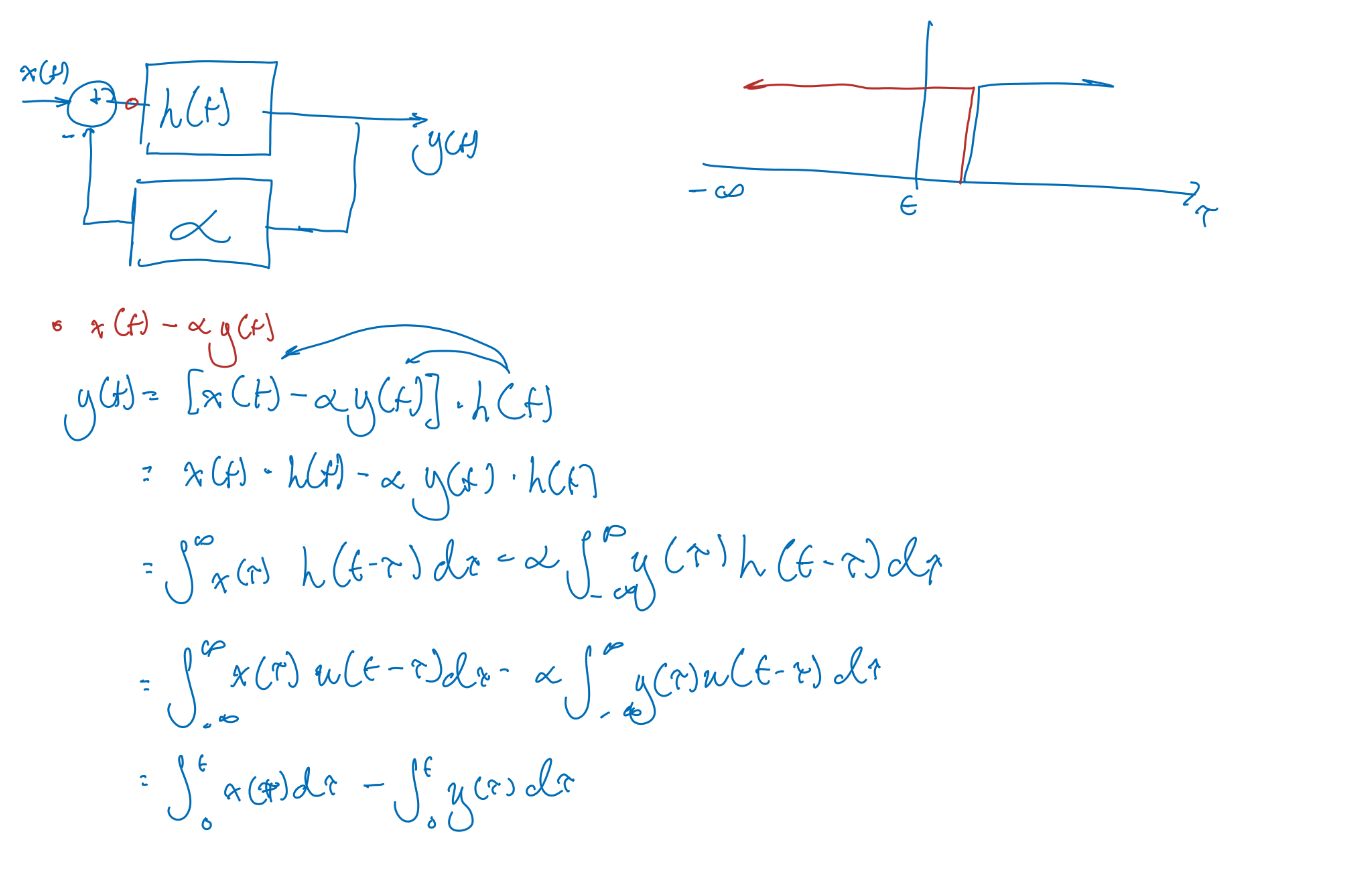 x(t)
+
h(t)
-
y(t)
α
-∞
t
τ
x(t) - αy(t)
y(t) = [x(t) - αy(t)] · h(t)
= x(t) · h(t) - α y(t) · h(t)
= ∫^∞ x(τ) h(t-τ)dτ - α ∫_{-∞}^∞ y(τ)h(t-τ)dτ
= ∫_{-∞}^∞ x(τ) u(t-τ)dτ - α ∫_{-∞}^∞ y(τ)u(t-τ)dτ
= ∫_0^t x(τ)dτ - ∫_0^t y(τ)dτ